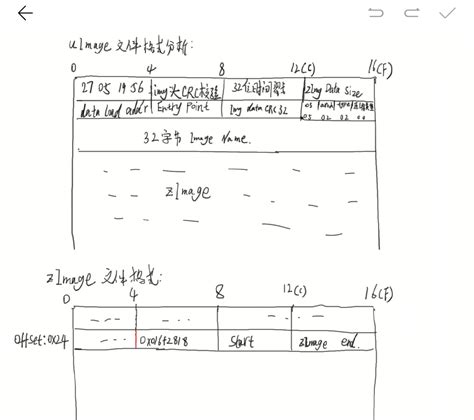 uImage 文件格式分析:
0 4 8 12(C) 16(F)
27 05 19 56 img头CRC校验 32位时间戳 zImg Data Size
data load addr Entry Point Img data CRC32 os arch type
05 02 02 00
32字节 Image Name.
zImage
zImage 文件格式:
0 4 8 12(C) 16(F)
offset:0x24 0x016f2818 start zImage end.